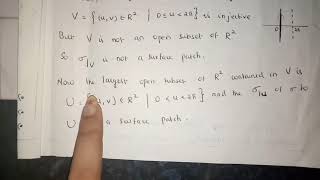 V = {(u,v) ∈ R² | 0 ≤ u < 2π} is injective
0 2π
But V is not an open subset of R²
So σ|V is not a surface patch.
Now the largest open subset of R² contained in V is
U = {(u,v) ∈ R² | 0 < u < 2π} and the σ|U of σ to
U a surface patch.